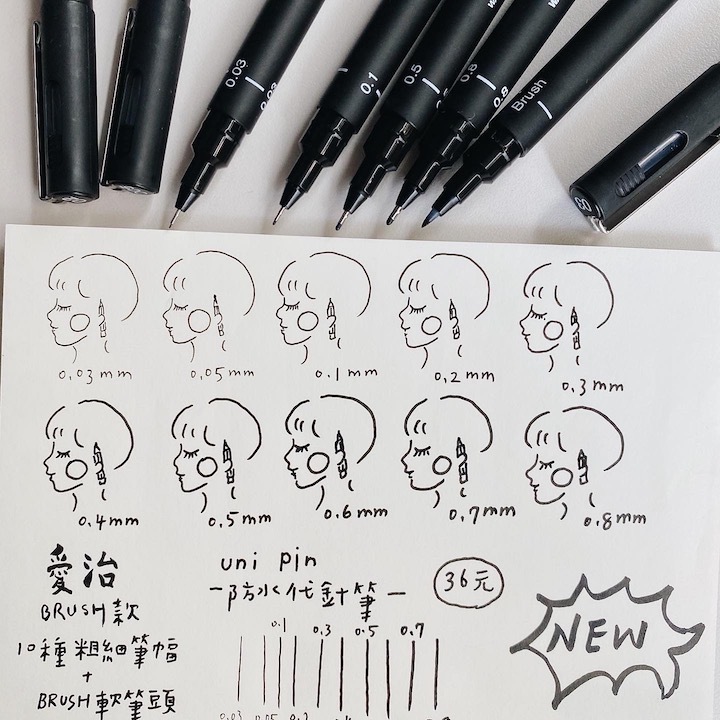 0.03
0.1
0.5
0.8
0.8
Brush
03
0.03mm 0.05mm 0.1mm 0.2mm 0.3mm
0.4mm 0.5mm 0.6mm 0.7mm 0.8mm
愛治
BRUSH款
10種粗細筆幅
+
BRUSH軟筆頭
uni pin
-防水代針筆-
36元
0.1 0.3 0.5 0.7
0.03 0.05 0.2
NEW